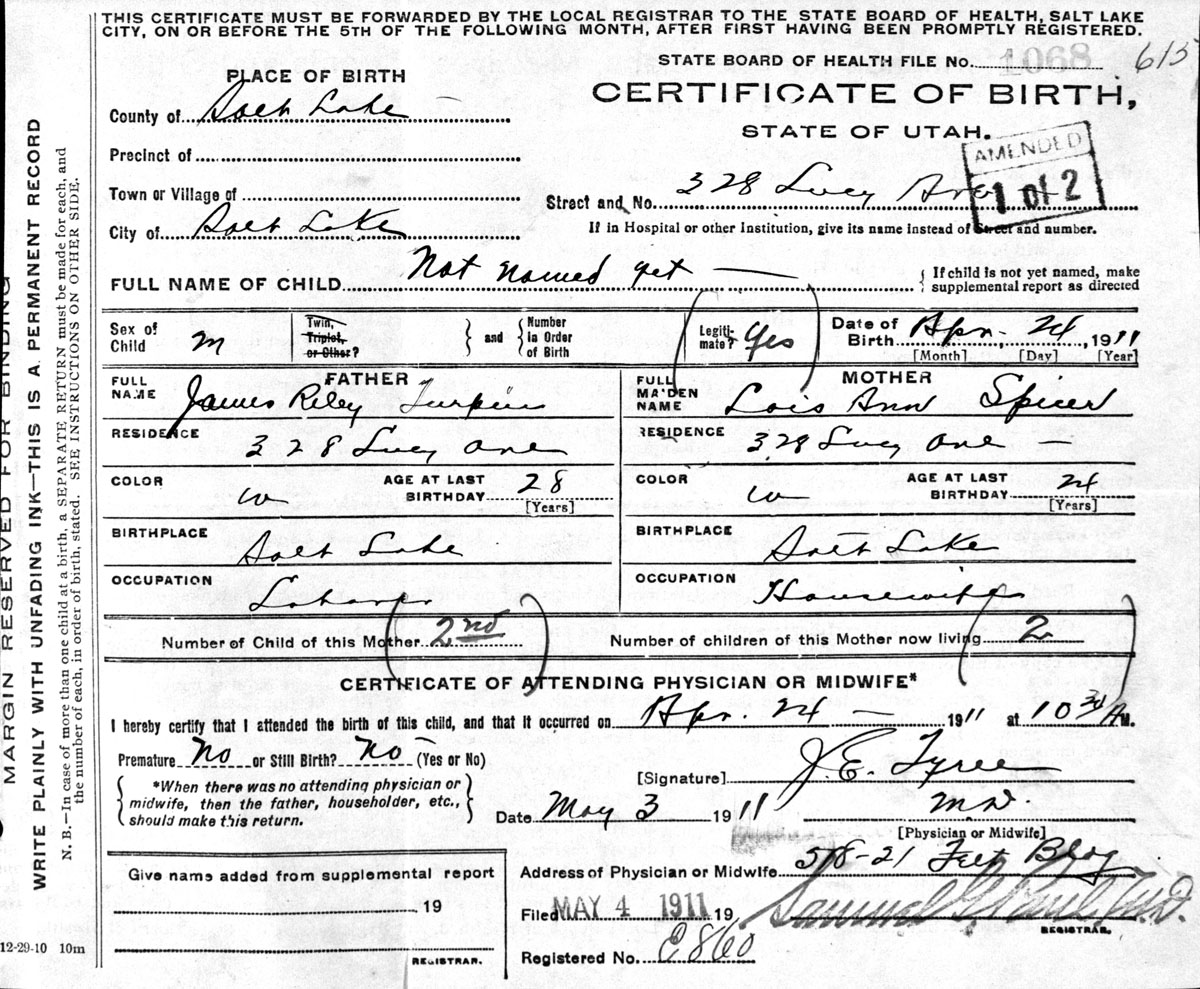 THIS CERTIFICATE MUST BE FORWARDED BY THE LOCAL REGISTRAR TO THE STATE BOARD OF HEALTH, SALT LAKE
CITY, ON OR BEFORE THE 5TH OF THE FOLLOWING MONTH, AFTER FIRST HAVING BEEN PROMPTLY REGISTERED.
MARGIN RESERVED FOR BINDING
WRITE PLAINLY WITH UNFADING INK—THIS IS A PERMANENT RECORD
N. B.—In case of more than one child at a birth, a SEPARATE RETURN must be made for each, and
the number of each, in order of birth, stated. SEE INSTRUCTIONS ON OTHER SIDE.
STATE BOARD OF HEALTH FILE No. 1068 615
PLACE OF BIRTH
CERTIFICATE OF BIRTH,
STATE OF UTAH.
AMENDED
1 of 2
County of Salt Lake
Precinct of
Town or Village of
Street and No. 328 Lucy Ave
City of Salt Lake
If in Hospital or other Institution, give its name instead of Street and number.
FULL NAME OF CHILD Not named yet
{ If child is not yet named, make
supplemental report as directed
Sex of Child M
Twin, Triplet, or Other?
and Number in Order of Birth
Legiti- mate? Yes
Date of Birth Apr. 24, 1911
[Month] [Day] [Year]
FATHER
FULL NAME James Riley Turpin
RESIDENCE 328 Lucy Ave
COLOR W AGE AT LAST BIRTHDAY 28
[Years]
BIRTHPLACE Salt Lake
OCCUPATION Laborer
MOTHER
FULL MAIDEN NAME Lois Ann Spicer
RESIDENCE 328 Lucy Ave —
COLOR W AGE AT LAST BIRTHDAY 24
[Years]
BIRTHPLACE Salt Lake
OCCUPATION Housewife
Number of Child of this Mother 2nd Number of children of this Mother now living 2
CERTIFICATE OF ATTENDING PHYSICIAN OR MIDWIFE*
I hereby certify that I attended the birth of this child, and that it occurred on Apr. 24 — 1911 at 10 30 A M.
Premature No or Still Birth? No (Yes or No)
*When there was no attending physician or
midwife, then the father, householder, etc.,
should make this return.
[Signature] J. E. Tyree
Date May 3 1911 M.D.
[Physician or Midwife]
Address of Physician or Midwife 518-21 Felt Bldg
Give name added from supplemental report
19
REGISTRAR.
Filed MAY 4 1911 19 Samuel G. Paul M.D.
REGISTRAR.
Registered No. E860
12-29-10 10m